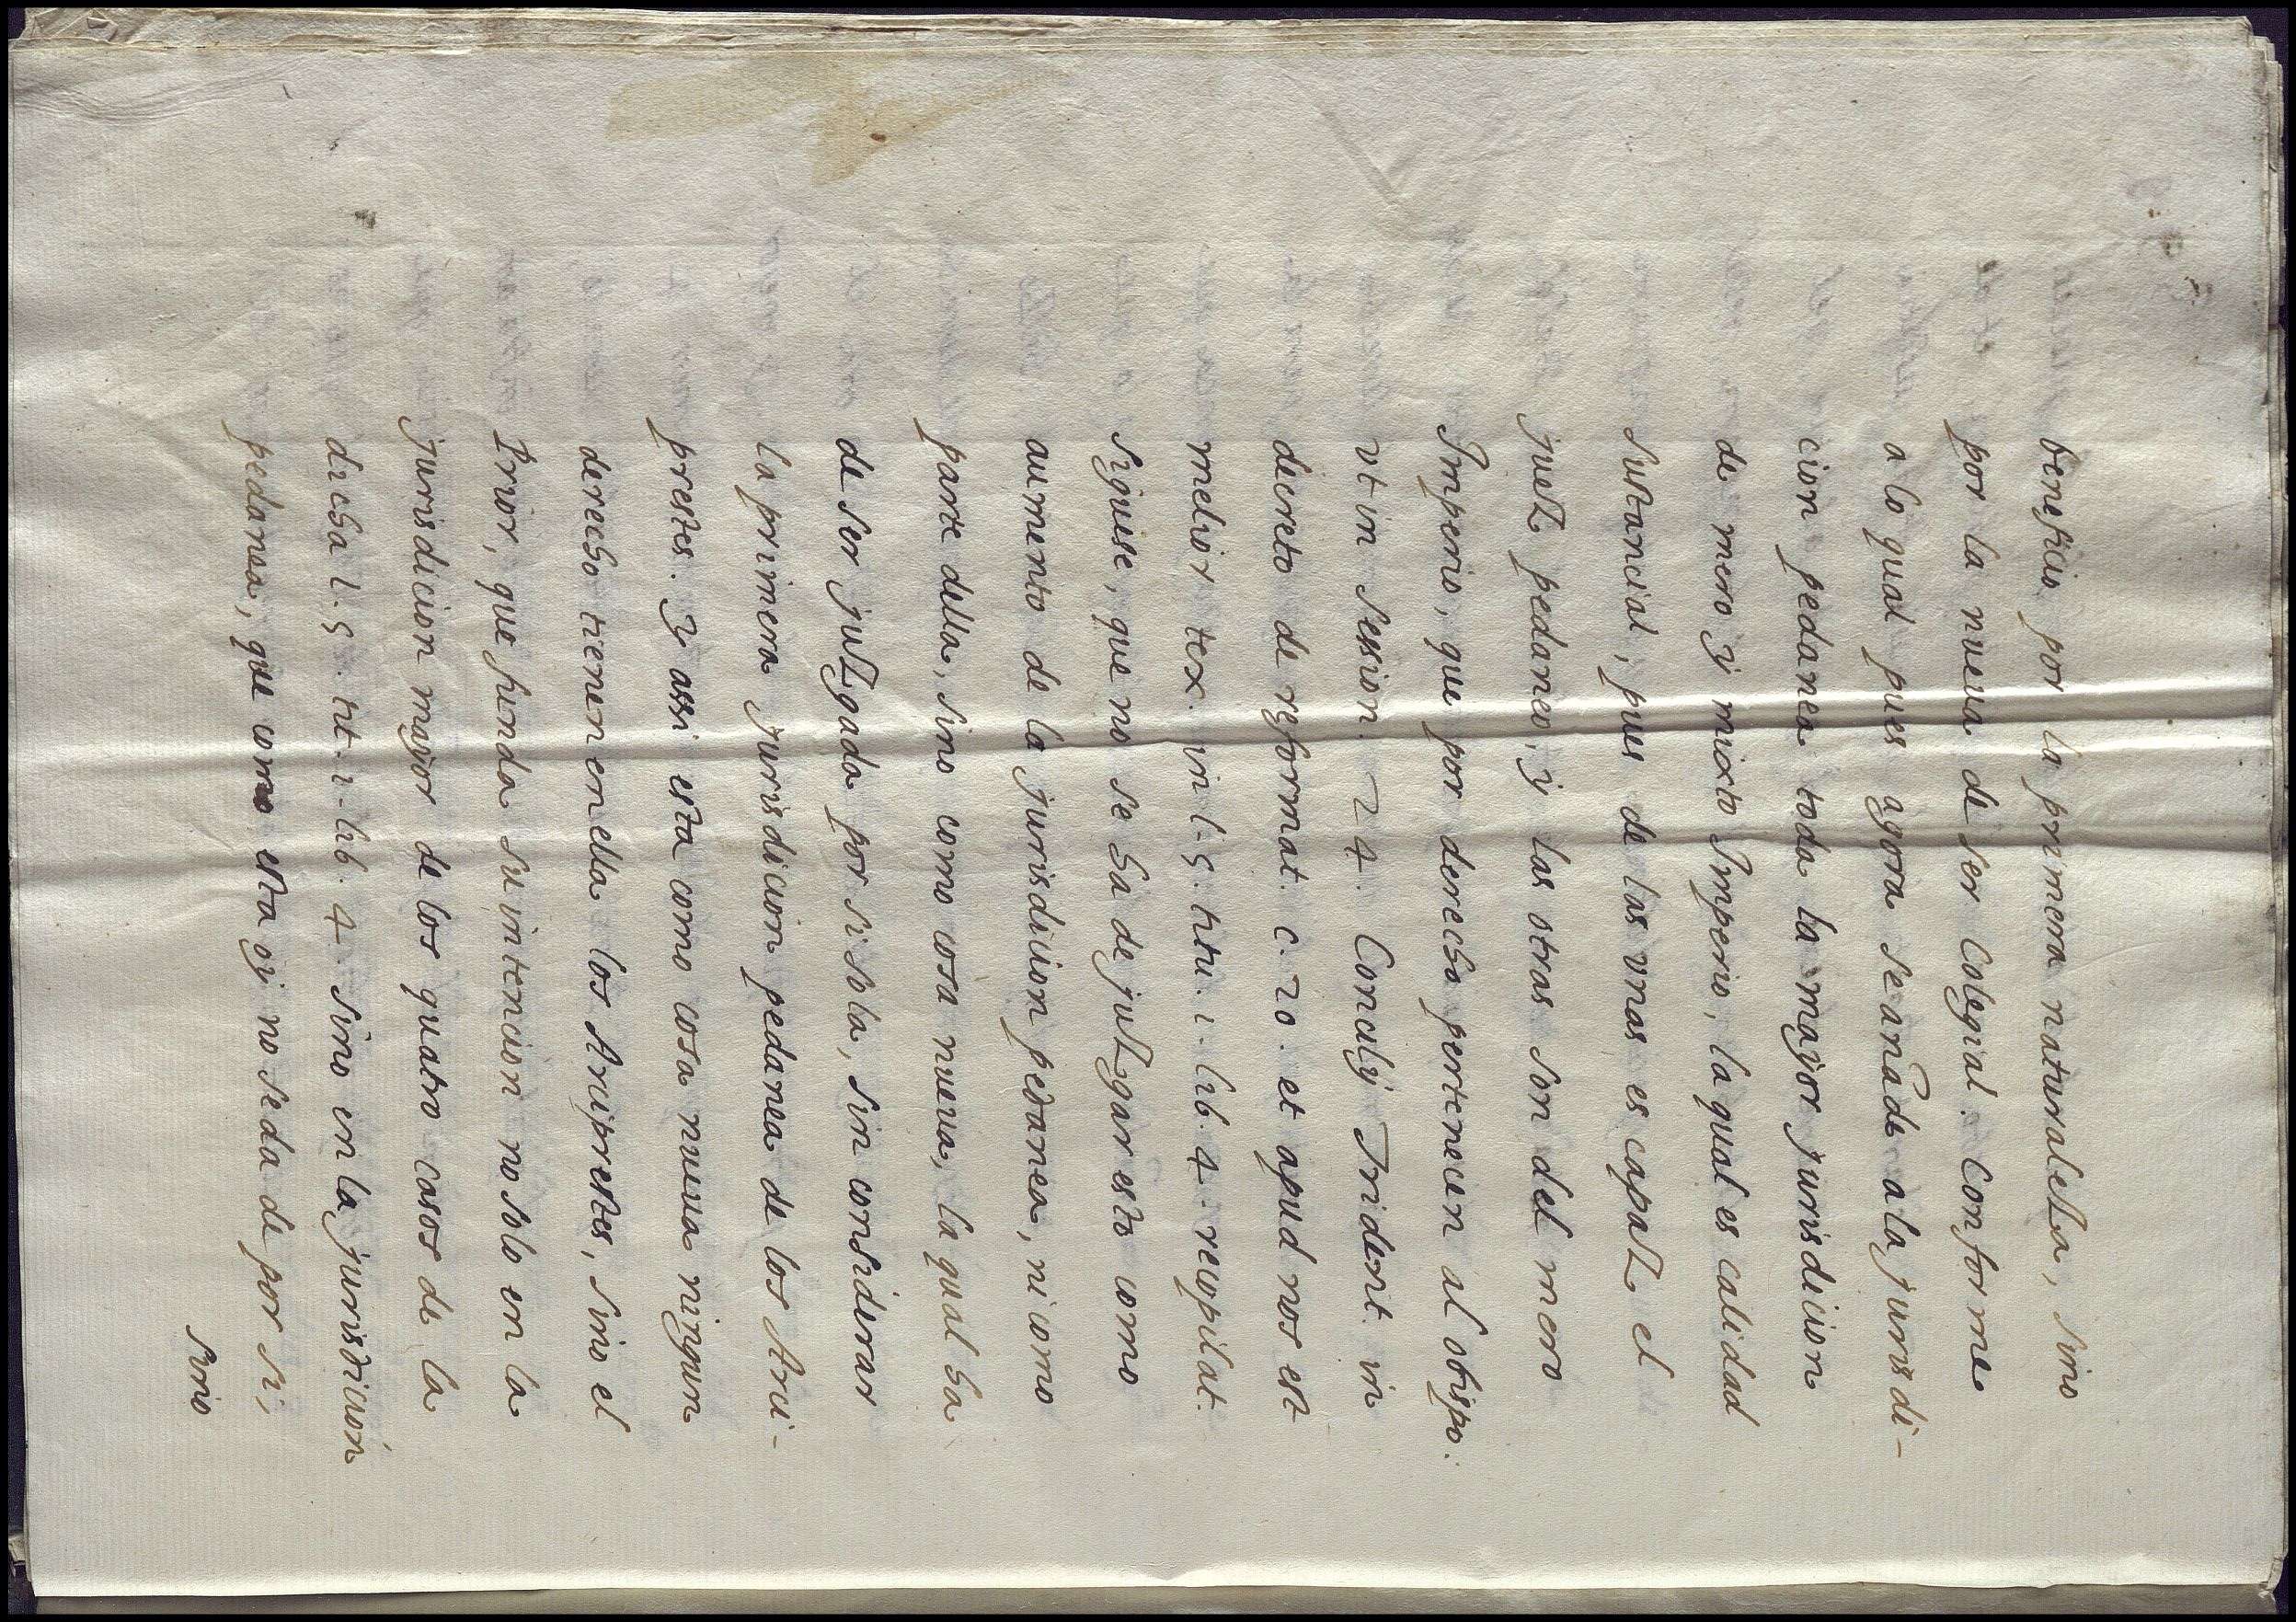 beneficio por la primera naturaleza, sino
por la nueva de ser Colegial. Conforme
a lo qual pues agora se añade a la jurisdi-
cion pedanea toda la mayor jurisdicion
de mero y mixto Imperio, la qual es calidad
sustancial, pues de las unas es capaz el
juez pedaneo, y las otras son del mero
Imperio, que por derecho pertenecen al obispo.
vt in session. 24. Concilij Trident. in
decreto de reformat. c. 20. et apud nos est
melior tex. in l. 5. titu. 1. lib. 4. recopilat.
siguese, que no se ha de juzgar esto como
aumento de la jurisdicion pedanea, ni como
parte della, sino como cosa nueva, la qual ha
de ser juzgada por si sola, sin considerar
la primera jurisdicion pedanea de los Arci-
prestes. y assi esta como cosa nueva ningun
derecho tienen en ella los Arciprestes, sino el
Prior, que funda su intencion no solo en la
jurisdicion mayor de los quatro casos de la
dicha l. 5. tit. 1. lib. 4. sino en la jurisdicion
pedanea, que como esta oy no se da de por si,
sino